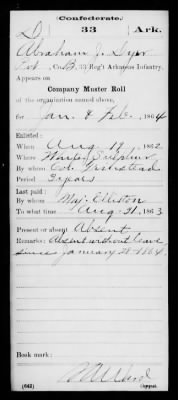 Confederate.
D 33 Ark.
Abraham J. Dyer
Pvt, Co. B, 33 Reg't Arkansas Infantry.
Appears on
Company Muster Roll
of the organization named above,
for Jan & Feb, 1864
Enlisted:
When Aug 12, 1862
Where Sulphur
By whom Col. Grinstead
Period 3 years
Last paid:
By whom Maj. Elliston
To what time Aug 31, 1863
Present or absent Absent
Remarks: Absent without leave
since January 28 1864.
Book mark:
Ward
(642) Copyist.